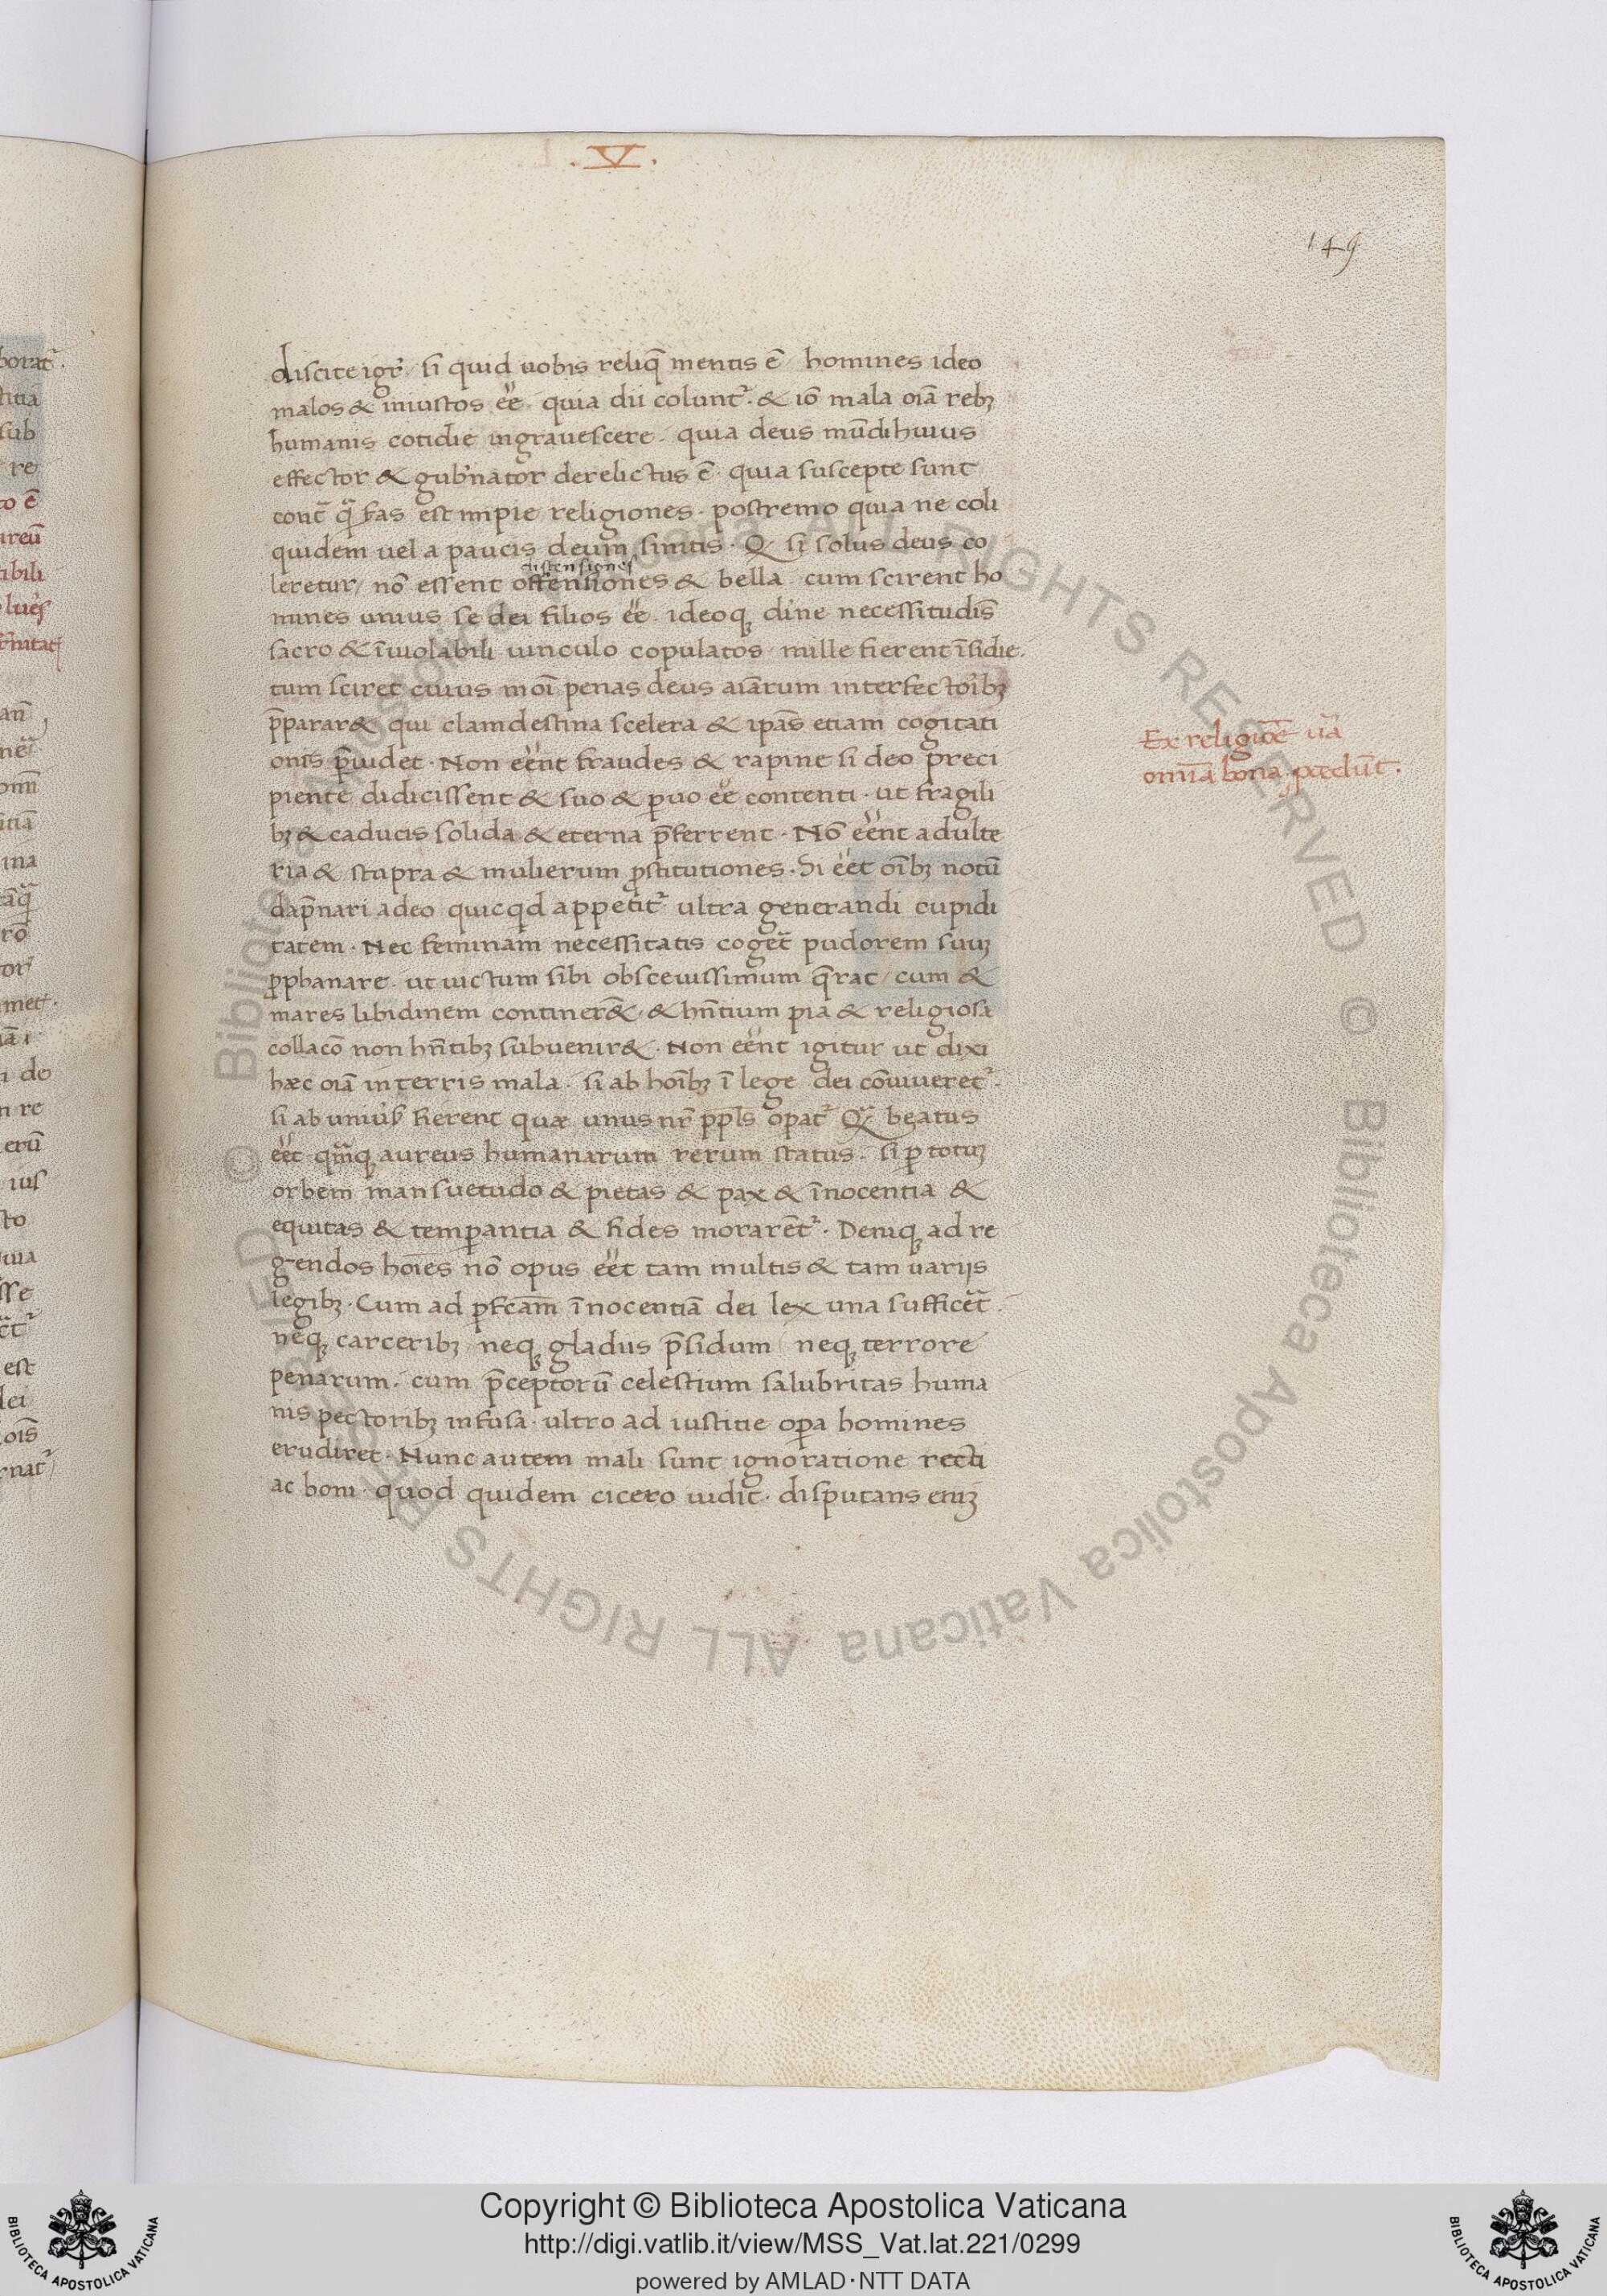 .V.
149
discite igr̃ / si quid uobis reliq̃ mentis ẽ homines ideo
malos & iniustos eẽ quia dii colunt᷑ · & iõ mala oĩa rebꝫ
humanis cotidie ingrauescere · quia deus mũdi huius
effector & gub̃nator derelictus ẽ · quia suscepte sunt
cont̃ q̃ fas est impie religiones · postremo quia ne coli
quidem uel a paucis deum sinitis · Q̃ si solus deus co
dissensiones
leretur / nõ essent offensiones & bella · cum scirent ho
mines unius se dei filios eẽ · ideoqꝫ diũne necessitudis̃
sacro & ĩuiolabili uinculo copulatos · nulle fierent ĩsidie ·
cum sciret cuius moĩ penas deus aĩarum interfectoribꝫ
p̃parar& qui clamdestina scelera & ip̃as etiam cogitati
onis p̃uidet · Non eẽnt fraudes & rapine si deo preci
piente didicissent & suo & p̱uo eẽ contenti · ut fragili
bꝫ & caducis solida & eterna p̃ferrent · Nõ eẽnt adulte
ria & stupra & mulierum ꝓstitutiones · Si eẽt oĩbꝫ notũ
dap̃nari a deo quicqd appetit᷑ ultra generandi cupidi
tatem · Nec feminam necessitatis coget̃ pudorem suuꝫ
ꝓphanare · ut uictum sibi obscenissimum q̃rat / cum &
mares libidinem continer& · & hñtium pia & religiosa
collacõ non hñtibꝫ subuenir& · Non eẽnt igitur ut dixi
hæc oĩa in terris mala · si ab hoĩbꝫ ĩ lege dei cõuiueret᷑ ·
si ab uniũs̃ fierent quæ unus nr̃ ppl̃s opat᷑ Q̃ beatus
eẽt qm̃qꝫ aureus humanarum rerum status · si ꝑ totuꝫ
orbem mansuetudo & pietas & pax & ĩnocentia &
equitas & temꝑantia & fides morarẽt᷑ · Deniqꝫ ad re
gendos hoĩes nõ opus eẽt tam multis & tam uarijs
legibꝫ · Cum ad ꝑfcãm ĩnocentiã dei lex una sufficet̃ ·
neqꝫ carceribꝫ · neqꝫ gladius p̃sidum / neqꝫ terrore
penarum · cum p̃ceptorũ celestium salubritas huma
nis pectoribꝫ infusa · ultro ad iustitie oꝑa homines
erudiret · Nunc autem mali sunt ignoratione recti
ac boni · quod quidem cicero uidit · disputans enĩꝫ
Ex religiõe ũa
omĩa bona ꝓcedũt ·
Copyright © Biblioteca Apostolica Vaticana
http://digi.vatlib.it/view/MSS_Vat.lat.221/0299
powered by AMLAD·NTT DATA
BIBLIOTECA APOSTOLICA VATICANA
BIBLIOTECA APOSTOLICA VATICANA